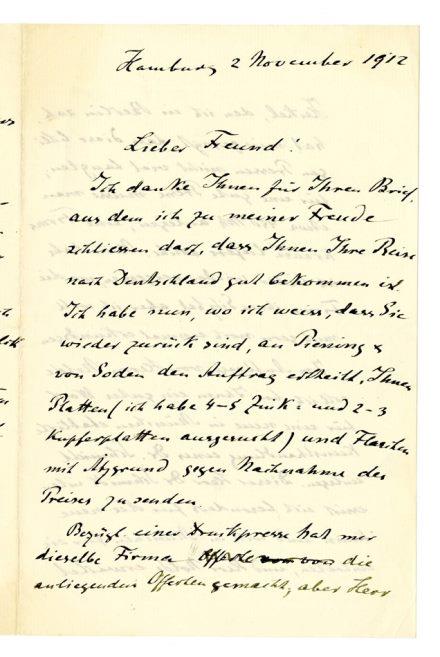 Hamburg 2 November 1912
Lieber Freund!
Ich danke Ihnen für Ihren Brief,
aus dem ich zu meiner Freude
schliessen darf, dass Ihnen Ihre Reise
nach Deutschland gut bekommen ist.
Ich habe nun, wo ich weiss, dass Sie
wieder zurück sind, an
von Soden den Auftrag ertheilt, Ihnen
Platten (ich habe 4-5 Zink= und 2-3
Kupferplatten ausgesucht) und Flaschen
mit Ätzgrund gegen Nachnahme des
Preises zu senden.
Bezügl. einer Druckpresse hat mir
dieselbe Firma die
anliegenden Offerten gemacht, aber Herr